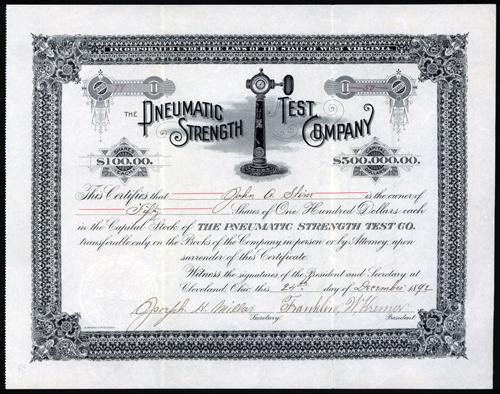 INCORPORATED UNDER THE LAWS OF THE STATE OF WEST VIRGINIA
77
50
THE PNEUMATIC STRENGTH TEST COMPANY
$100.00.
$500,000.00.
This Certifies that John A. is the owner of
Fifty Shares of One Hundred Dollars each
in the Capital Stock of THE PNEUMATIC STRENGTH TEST CO.
transferable only on the Books of the Company in person or by Attorney upon
surrender of this Certificate.
Witness the signatures of the President and Secretary at
Cleveland, Ohio, this 24th day of December 1892
Joseph H. Miller Franklin W Kremer
Secretary. President.